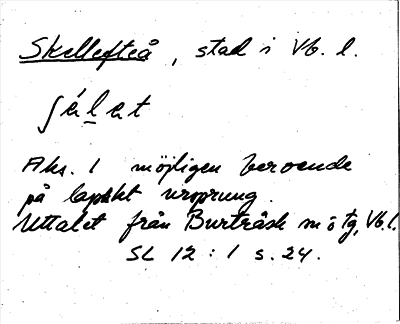 Skellefteå, stad i Vb. l.
ʃélet
Aks. 1 möjligen beroende
på lapskt ursprung.
Uttalet från Burträsk m ö tg, Vb. l.
SL 12 : 1 s. 24.